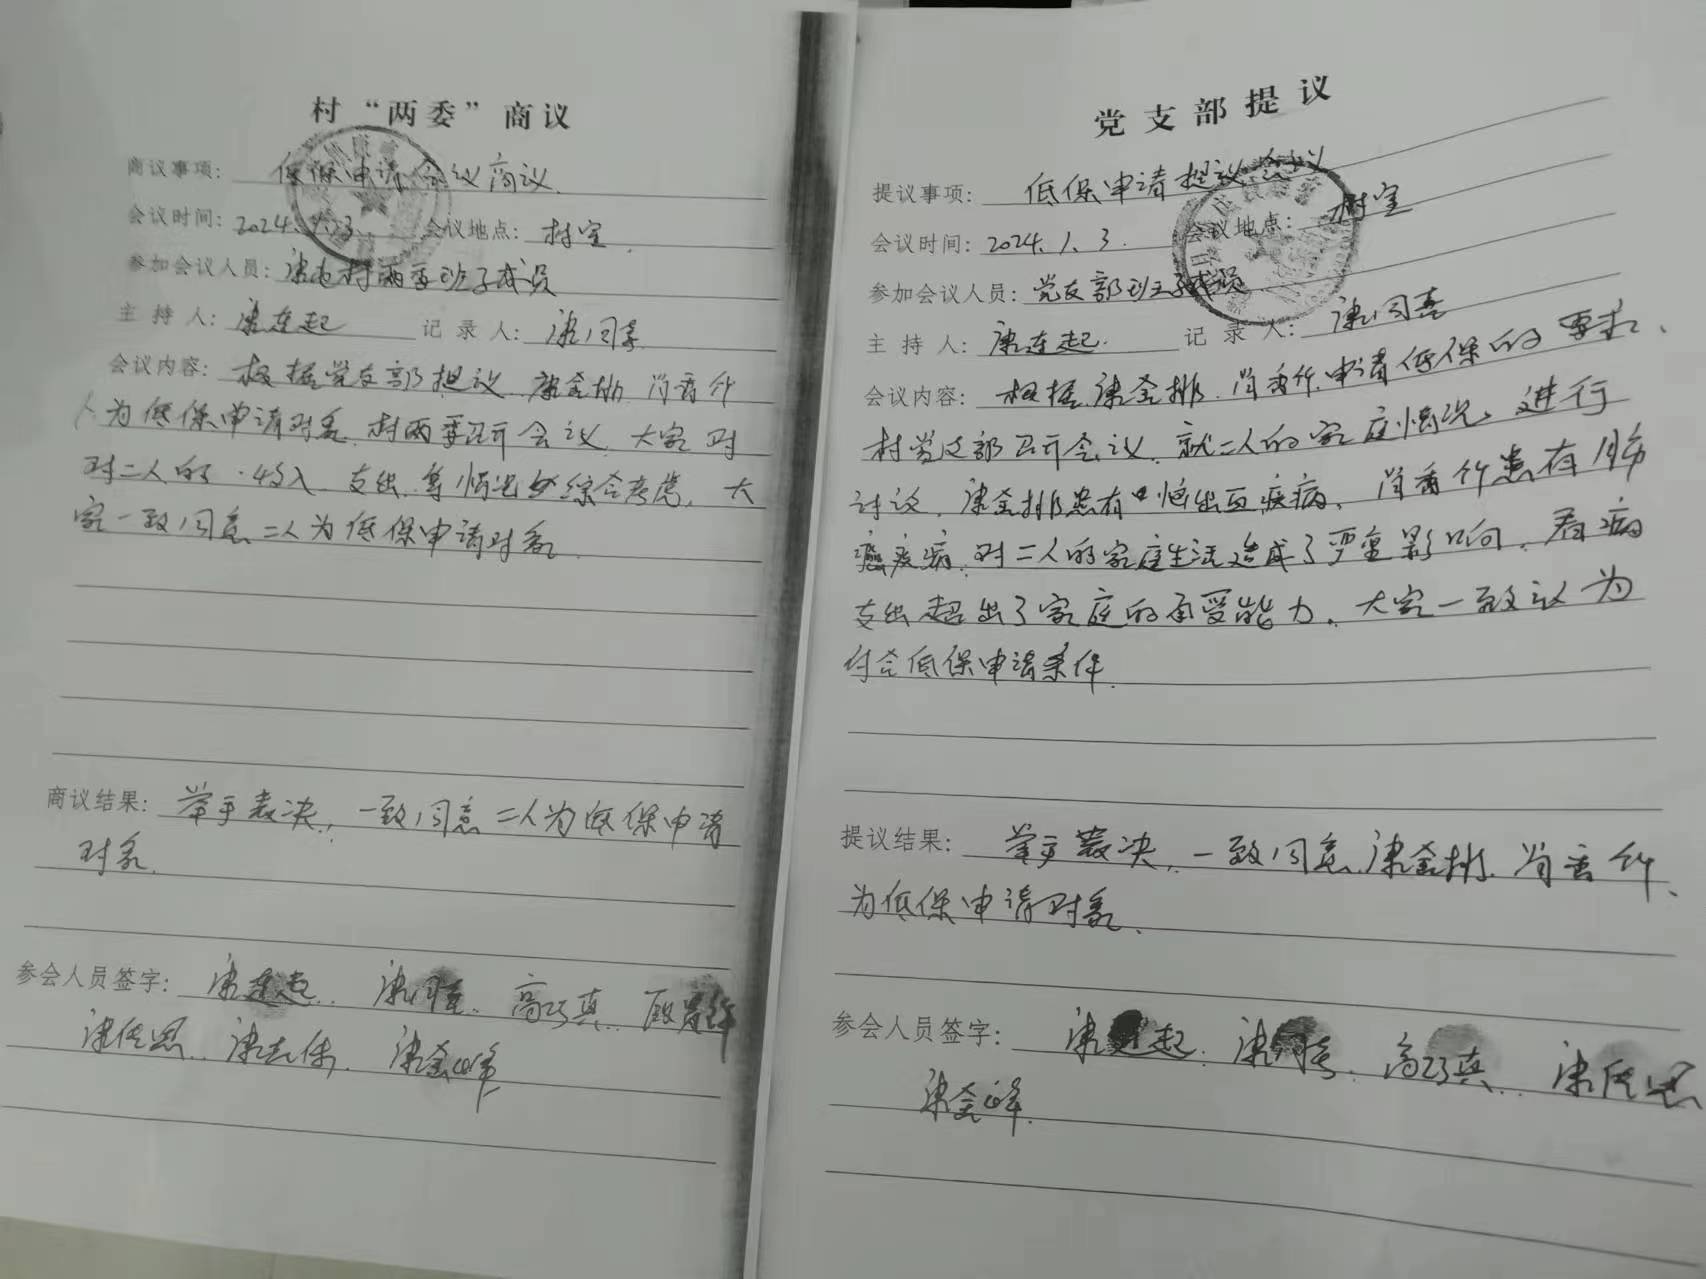 村“两委”商议
商议事项: 低保申请会议商议.
会议时间: 2024. 会议地点: 村室.
参加会议人员: 康 村两委班子成员
主 持 人: 康连起 记 录 人: 康同喜
会议内容: 根据党支部提议 康金排 肖香竹
人为低保申请对象, 村两委召开会议, 大家对
对二人的 收入 支出 等情况 综合考虑, 大
家一致同意二人为低保申请对象.
商议结果: 举手表决, 一致同意二人为低保申请
对象.
参会人员签字: 康连起. 康同喜. 高巧真.
康 康 康金峰
党支部提议
提议事项: 低保申请提议会议
会议时间: 2024.1.3. 会议地点: 村室
参加会议人员: 党支部班子成员
主 持 人: 康连起. 记 录 人: 康同喜
会议内容: 根据康金排. 肖香竹. 申请低保的要求、
村党支部召开会议. 就二人的家庭情况. 进行
讨议. 康金排患有 出血疾病, 肖香竹患有肺
癌疾病, 对二人的家庭生活造成了严重影响, 看病
支出超出了家庭的承受能力, 大家一致认为
付合低保申请条件.
提议结果: 举手表决, 一致同意.康金排. 肖香竹.
为低保申请对象.
参会人员签字: 康连起. 康同喜. 高巧真.. 康
康金峰.